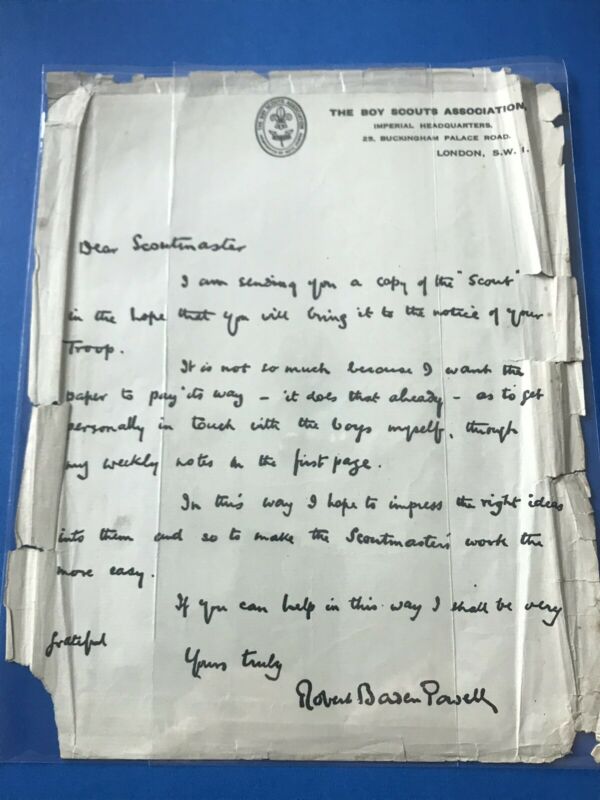 THE BOY SCOUTS ASSOCIATION,
IMPERIAL HEADQUARTERS,
25, BUCKINGHAM PALACE ROAD.
LONDON, S.W.1.
Dear Scoutmaster
I am sending you a copy of the "Scout"
in the hope that you will bring it to the notice of your
Troop.
It is not so much because I want the
paper to pay its way – it does that already – as to get
personally in touch with the boys myself, through
my weekly notes on the first page.
In this way I hope to impress the right ideas
into them and so to make the Scoutmaster's work the
more easy.
If you can help in this way I shall be very
grateful
Yours truly
Robert Baden Powell